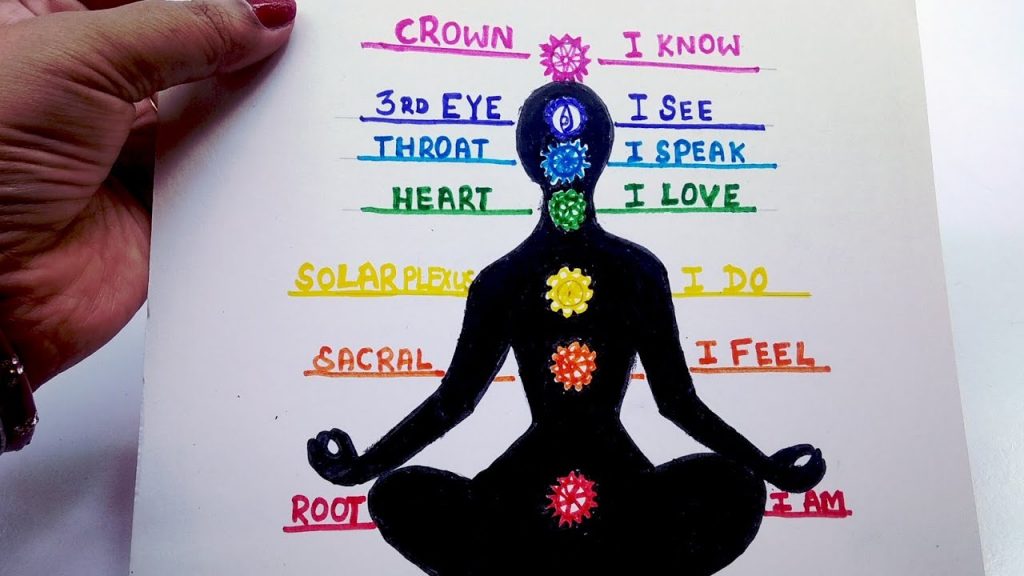 CROWN I KNOW
3RD EYE I SEE
THROAT I SPEAK
HEART I LOVE
SOLAR PLEXUS I DO
SACRAL I FEEL
ROOT I AM